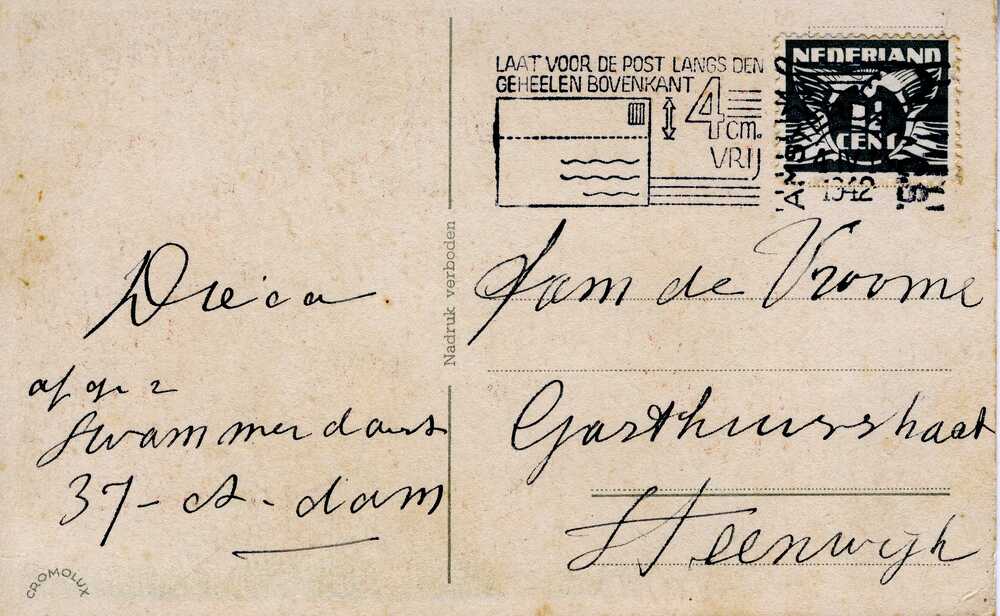 LAAT VOOR DE POST LANGS DEN
GEHEELEN BOVENKANT
4 cm.
VRIJ
NEDERLAND
1½
CENT
1942
Nadruk verboden
Fam de Vroome
Gasthuisstraat
Steenwijk
Dreica
afgez
Swammerdamst
37-A-dam
CROMOLUX